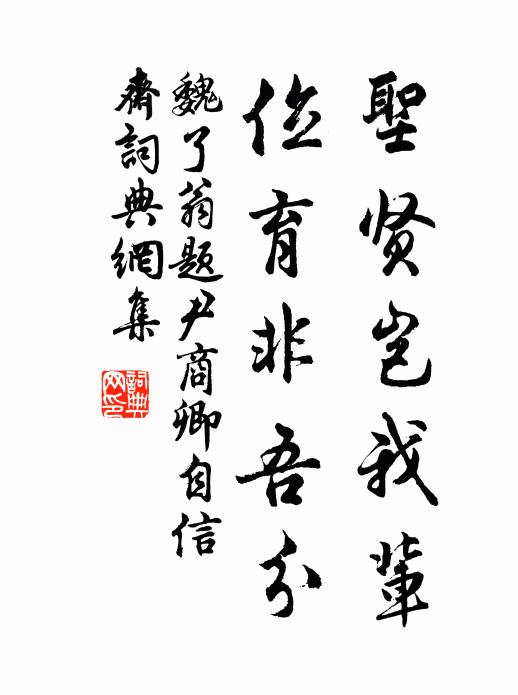 聖贤岂我輩
位育非吾分
魏了翁题尹商卿自信
齋詞典網集
詞典网印